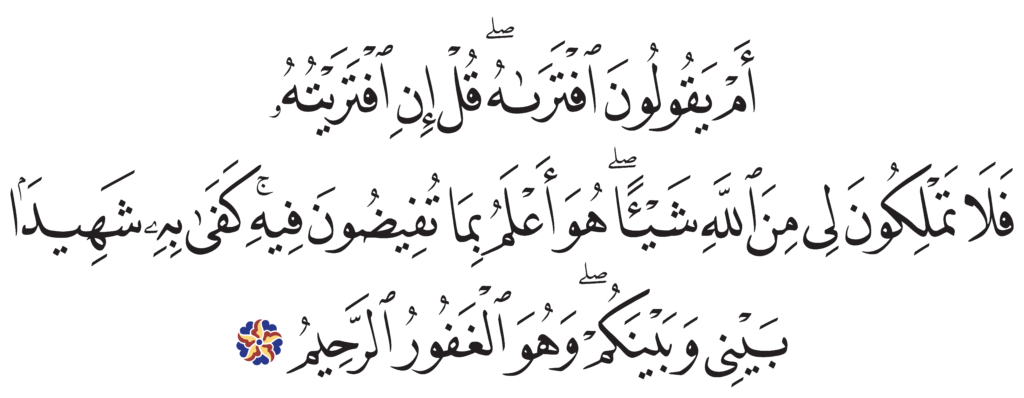 أَمْ يَقُولُونَ ٱفْتَرَىٰهُ ۖ قُلْ إِنِ ٱفْتَرَيْتُهُۥ
فَلَا تَمْلِكُونَ لِى مِنَ ٱللَّهِ شَيْـًٔا ۖ هُوَ أَعْلَمُ بِمَا تُفِيضُونَ فِيهِ ۚ كَفَىٰ بِهِۦ شَهِيدَۢا
بَيْنِى وَبَيْنَكُمْ ۖ وَهُوَ ٱلْغَفُورُ ٱلرَّحِيمُ